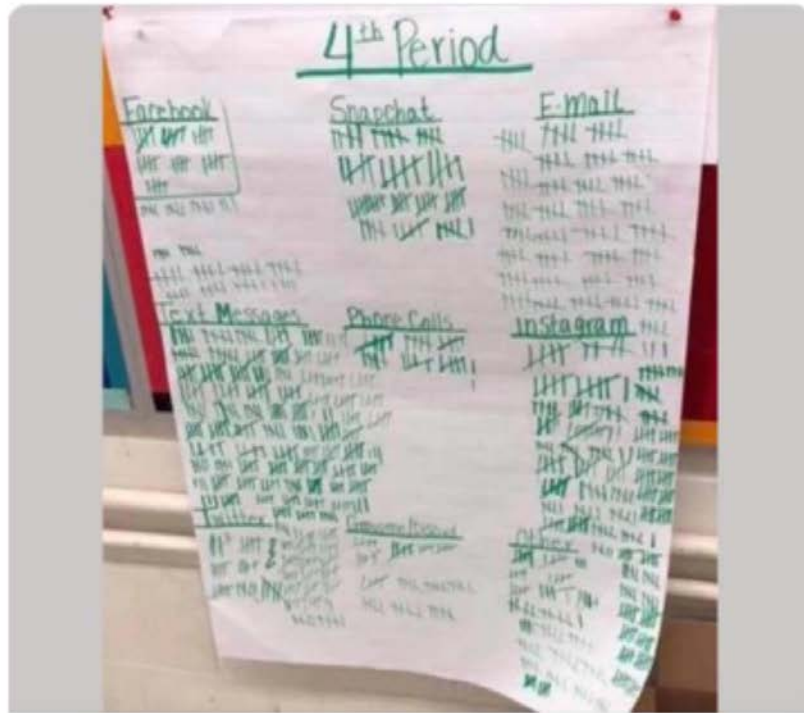 4th Period
Facebook Snapchat E-Mail
Text Messages Phone Calls Instagram
Twitter Other